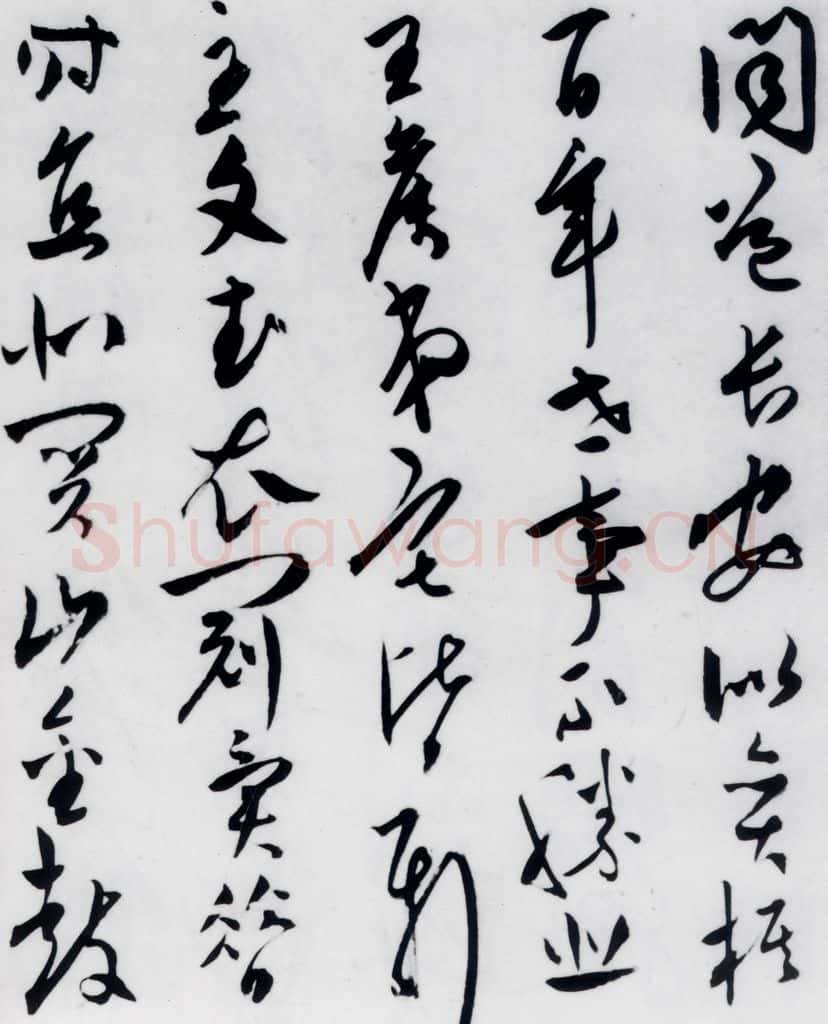 聞道長安似奕棋
百年世事不勝悲
王侯第宅皆新
主文武衣冠異昔
時直北關山金鼓
Shufawang.CN